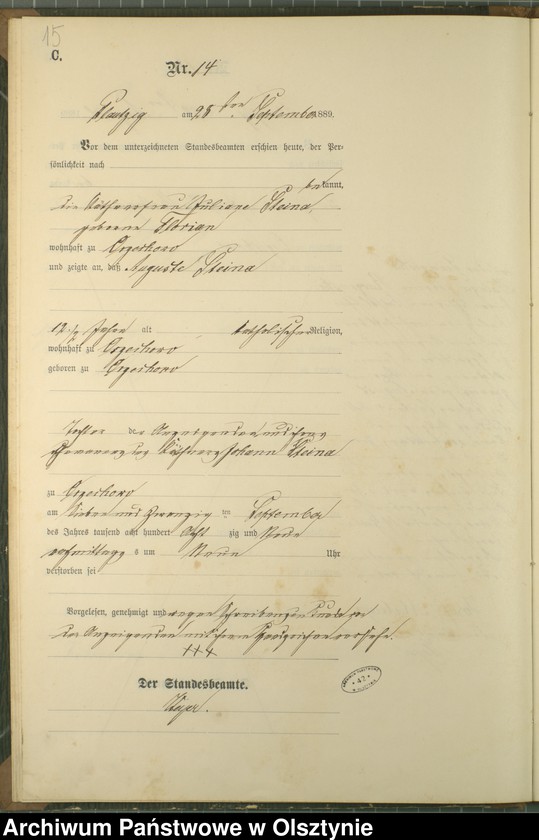 15
C.
Nr. 14
am 28 ten September 1889.
Vor dem unterzeichneten Standesbeamten erschien heute, der Per-
sönlichkeit nach
bekannt,
die Käthnerfrau Juliane
geborene Florian
wohnhaft zu
und zeigte an, daß Auguste
12 1/2 Jahre alt, katholischer Religion,
wohnhaft zu
geboren zu
Tochter der Anzeigenden und ihres
Ehemannes des Käthners Johann
zu
am Sieben und Zwanzig ten September
des Jahres tausend acht hundert Acht zig und Neun
vormittags um Neun Uhr
verstorben sei
Vorgelesen, genehmigt und wegen Schreibensunkunde
der Anzeigenden mit ihrem Handzeichen versehen.
+++
Der Standesbeamte.
42
Archiwum Państwowe w Olsztynie